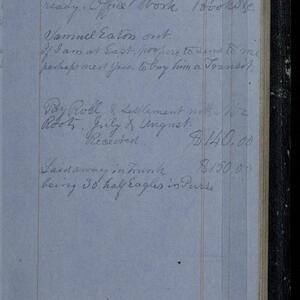 ready. Office Work Books &c.
Samuel Eaton out.
If I am at East, propose to send to me
perhaps next year to buy him a Transit.
Pay Roll & Settlement with Mr
Root. July & August.
Received $140.00
Laid away in Trunk $150.00
being 30 half Eagles in Purse